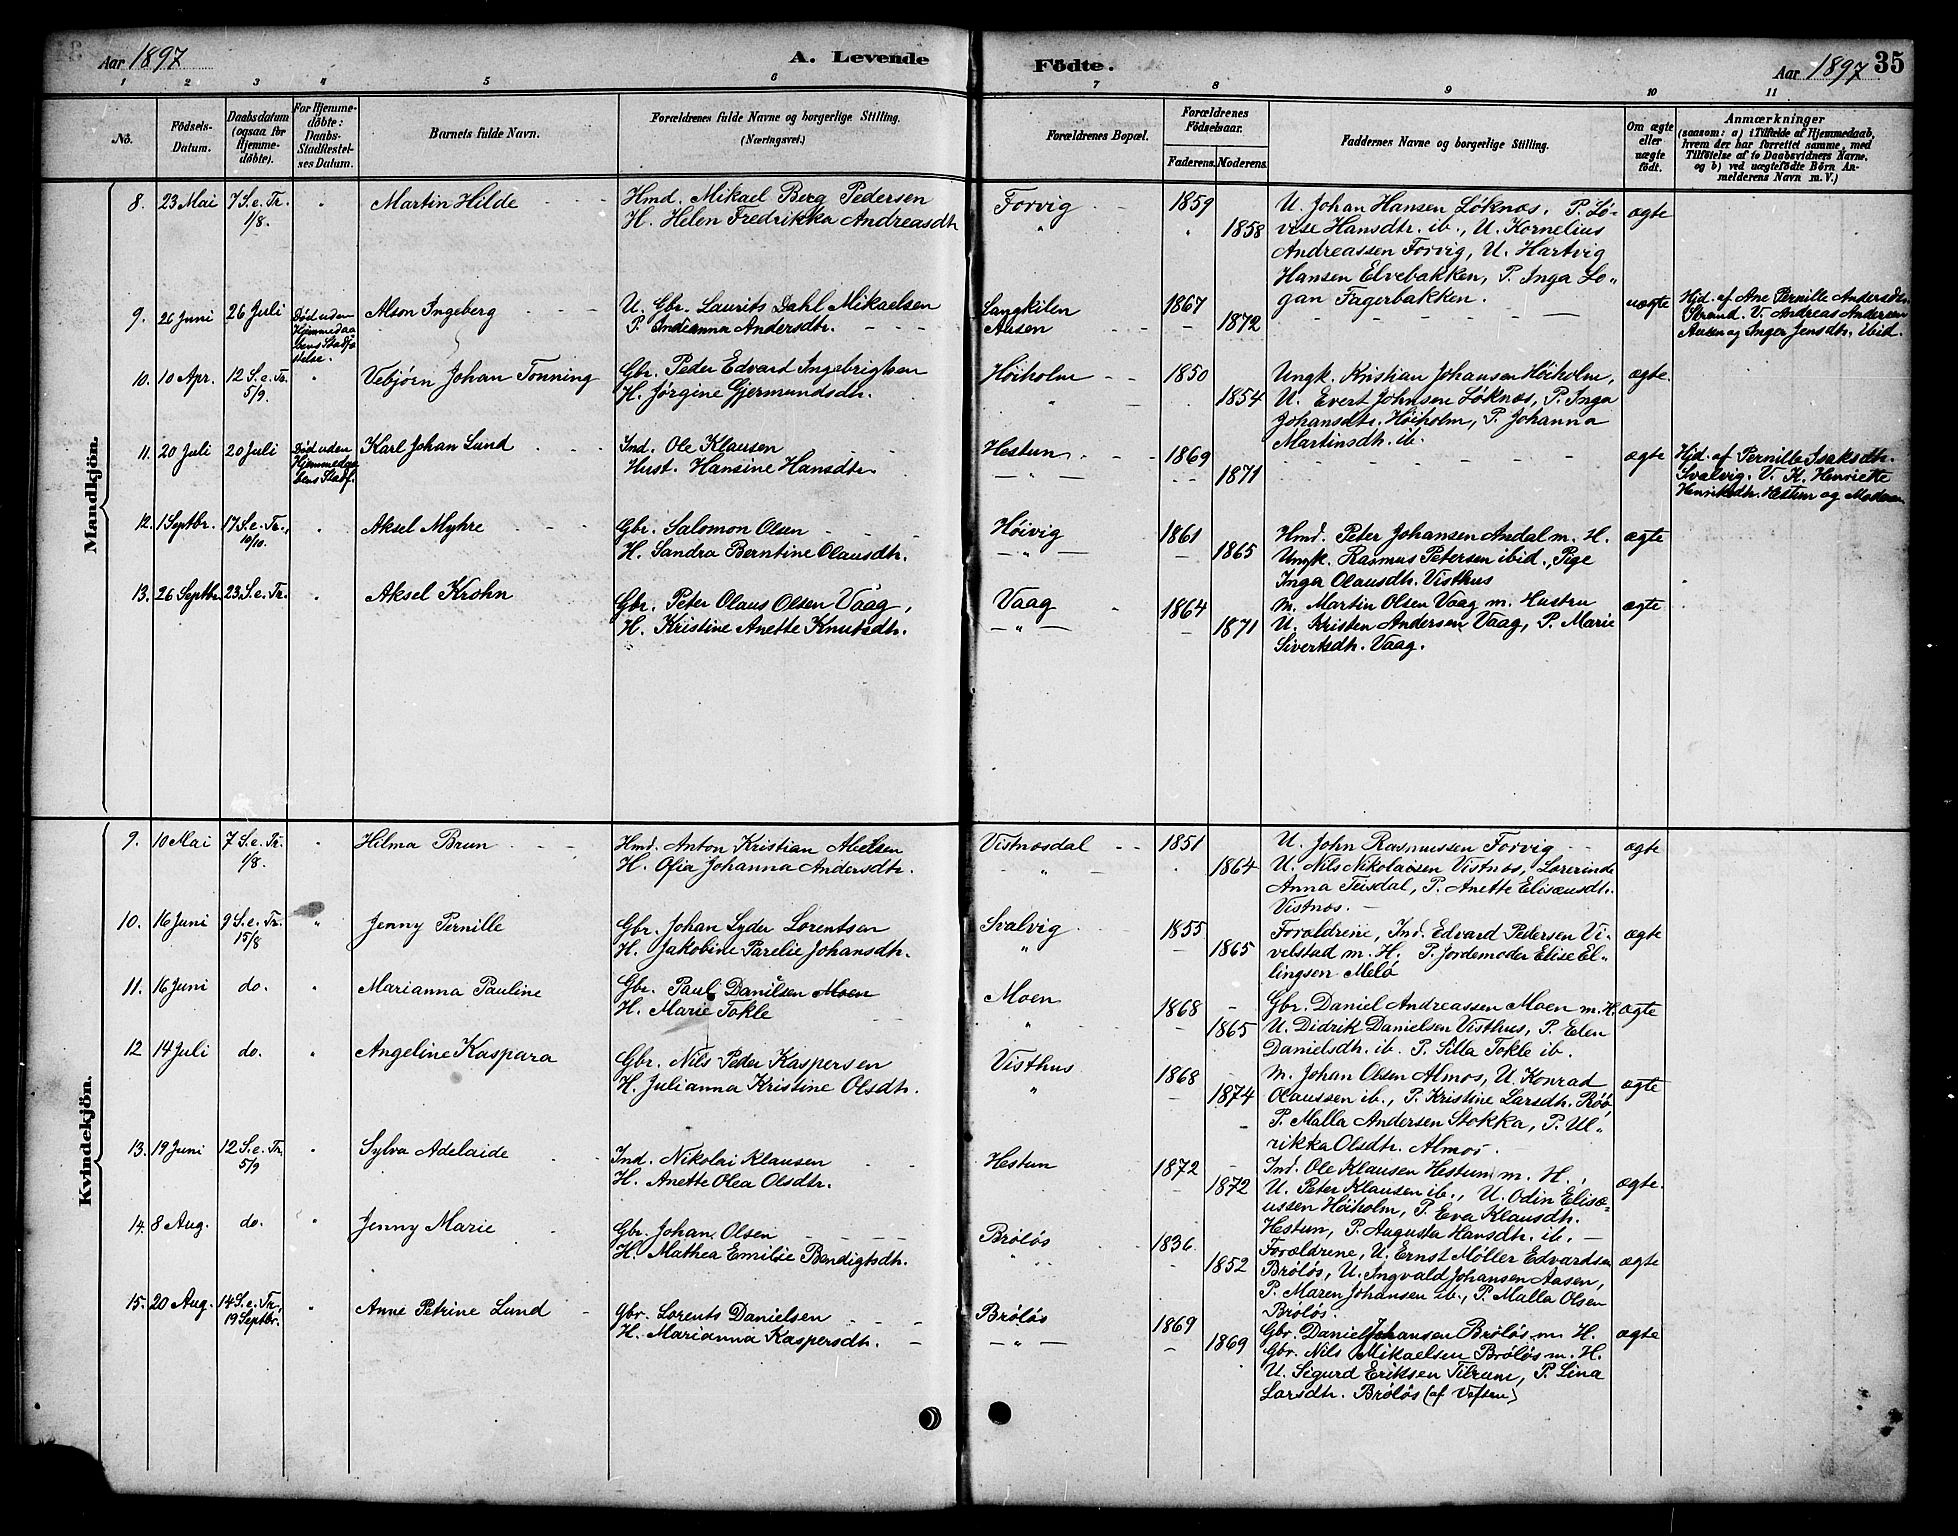 Aar 1897 A. Levende Födte. Aar 1897 35
1 2 3 4 5 6 7 8 9 10 11
No. Födsels-Datum. Daabsdatum (ogsaa for Hjemmedöbte). For Hjemmedöbte: Daabs-Stadfæstelses Datum. Barnets fulde Navn. Forældrenes fulde Navne og borgerlige Stilling. (Næringsvei.) Forældrenes Bopæl. Forældrenes Födselsaar. Faderens. Moderens. Faddernes Navne og borgerlige Stilling. Om ægte eller uægte födt. Anmærkninger (saasom: a) i Tilfælde af Hjemmedaab, hvem der har forrettet samme, med Tilföielse af to Daabsvidners Navne, og b) ved uægtefödte Börn Anmelderens Navn m. V.)
Mandkjön.
8. 23 Mai 7 S. e. Tr. 1/8. " Martin Hilde
Hmd. Mikael Berg Pedersen
H. Helen Fredrikka Andreasdtr
Forvig 1859 1858
U. Johan Hansen Løknæs, P. Lø-
vise Hansdtr. ib., U. Kornelius
Andreassen Forvig, U. Hartvig
Hansen Elvebakken, P. Inga Lo-
gan Fagerbakken.
ægte
9. 26 Juni 26 Juli Död uden Hjemmedaabens Stadfæstelse. Alson Ingeberg
U. Gbr. Laurits Dahl Mikaelsen
P. Indianna Andersdtr.
Langkilen
Aasen
1867 1872 uægte
Hjd. af Ane Pernille Andersdtr.
Strand. V. Andreas Andersen
Aasen og Inger Jensdtr. ibid.
10. 10 Apr. 12 S. e. Tr. 5/9. " Vebjørn Johan Tonning
Gbr. Peder Edvard Ingebrigtsen
H. Jørgine Gjermundsdtr.
Høiholm 1850 1854
Ungk. Kristian Johansen Høiholm,
U. Evert Johnsen Løknæs, P. Inga
Johansdtr. Høiholm, P. Johanna
Martinsdtr. ib.
ægte.
11. 20 Juli 20 Juli Död uden Hjemmedaabens Stadf. Karl Johan Lund
Ind. Ole Klausen
Hust. Hansine Hansdtr.
Hestun 1869 1871 ægte
Hjd. af Pernille Isaksdtr.
Svalvig. V. K. Henriette
Henriksdtr. Hestun og Moderen
12. 1 Septbr. 17 S. e. Tr. 10/10. " Aksel Myhre
Gbr. Salomon Olsen
H. Sandra Berntine Olausdtr.
Høivig 1861 1865
Hmd. Peter Johansen Andal m. H.
Ungk. Rasmus Petersen ibid., Pige
Inga Olausdtr. Visthus
ægte
13. 26 Septbr 23 S. e. Tr. " Aksel Krohn
Gbr. Peter Olaus Olsen Vaag,
H. Kristine Anette Knutsdtr.
Vaag 1864 1871
m. Martin Olsen Vaag m. Hustru
U. Kristen Andersen Vaag, P. Marie
Sivertsdtr. Vaag.
ægte
Kvindekjön.
9. 10 Mai 7 S. e. Tr. 1/8. " Hilma Brun
Hmd. Anton Kristian Abelsen
H. Ofia Johanna Andersdtr.
Vistnæsdal 1851 1864
U. John Rasmussen Forvig
U. Nils Nikolaisen Vistnæs, Lærerinde
Anna Teisdal, P. Anette Elisæusdtr.
Vistnæs.
ægte
10. 16 Juni 9 S. e. Tr. 15/8 " Jenny Pernille
Gbr. Johan Lyder Lorentsen
H. Jakobine Parelie Johansdtr.
Svalvig 1855 1865
Forældrene, Ind. Edvard Pedersen Vi-
velstad m. H. P. Jordemoder Elise El-
lingsen Melø
ægte
11. 16 Juni do. " Marianna Pauline
Gbr. Paul Danilsen Moen
H. Marie Tokle
Moen 1868 1865
Gbr. Daniel Andreassen Moen m. H.
U. Didrik Danielsen Visthus, P. Elen
Danielsdtr. ib. P. Silla Tokle ib.
ægte
12 14 Juli do. " Angeline Kaspara
Gbr. Nils Peder Kaspersen
H. Julianna Kristine Olsdtr.
Visthus 1868 1874
m. Johan Olsen Almos, U. Konrad
Olaussen ib., P. Kristine Larsdtr. Røø
P. Malla Andersen Stokka, P. Ul-
rikka Olsdtr. Almos.
ægte
13. 19 Juni 12 S. e. Tr. 5/9 " Sylva Adelaide
Ind. Nikolai Klausen
H. Anette Olea Olsdtr.
Hestun 1872 1872
Ind. Ole Klausen Hestun m. H.,
U. Peter Klausen ib., U. Odin Elisæ-
ussen Høiholm, P. Eva Klausdtr.
Hestun, P. Augusta Hansdtr. ib.
ægte.
14. 8 Aug. do. " Jenny Marie
Gbr. Johan Olsen
H. Mathea Emilie Bendigtsdtr.
Brøløs 1836. 1852
Forældrene, U. Ernst Møller Edvardsen
Brøløs, U. Ingvald Johansen Aasen,
P. Maren Johansen ib., P. Malla Olsen
Brøløs.
ægte
15. 20 Aug. 14 S. e. Tr. 19 Septbr. " Anne Petrine Lund
Gbr. Lorents Danielsen
H. Marianna Kaspersdtr.
Brøløs 1869 1869
Gbr. Daniel Johansen Brøløs m. H.
Gbr. Nils Mikaelsen Brøløs m. H.
U. Sigurd Eriksen Tilrum, P. Lina
Larsdtr. Brøløs (af Vefsen)
ægte